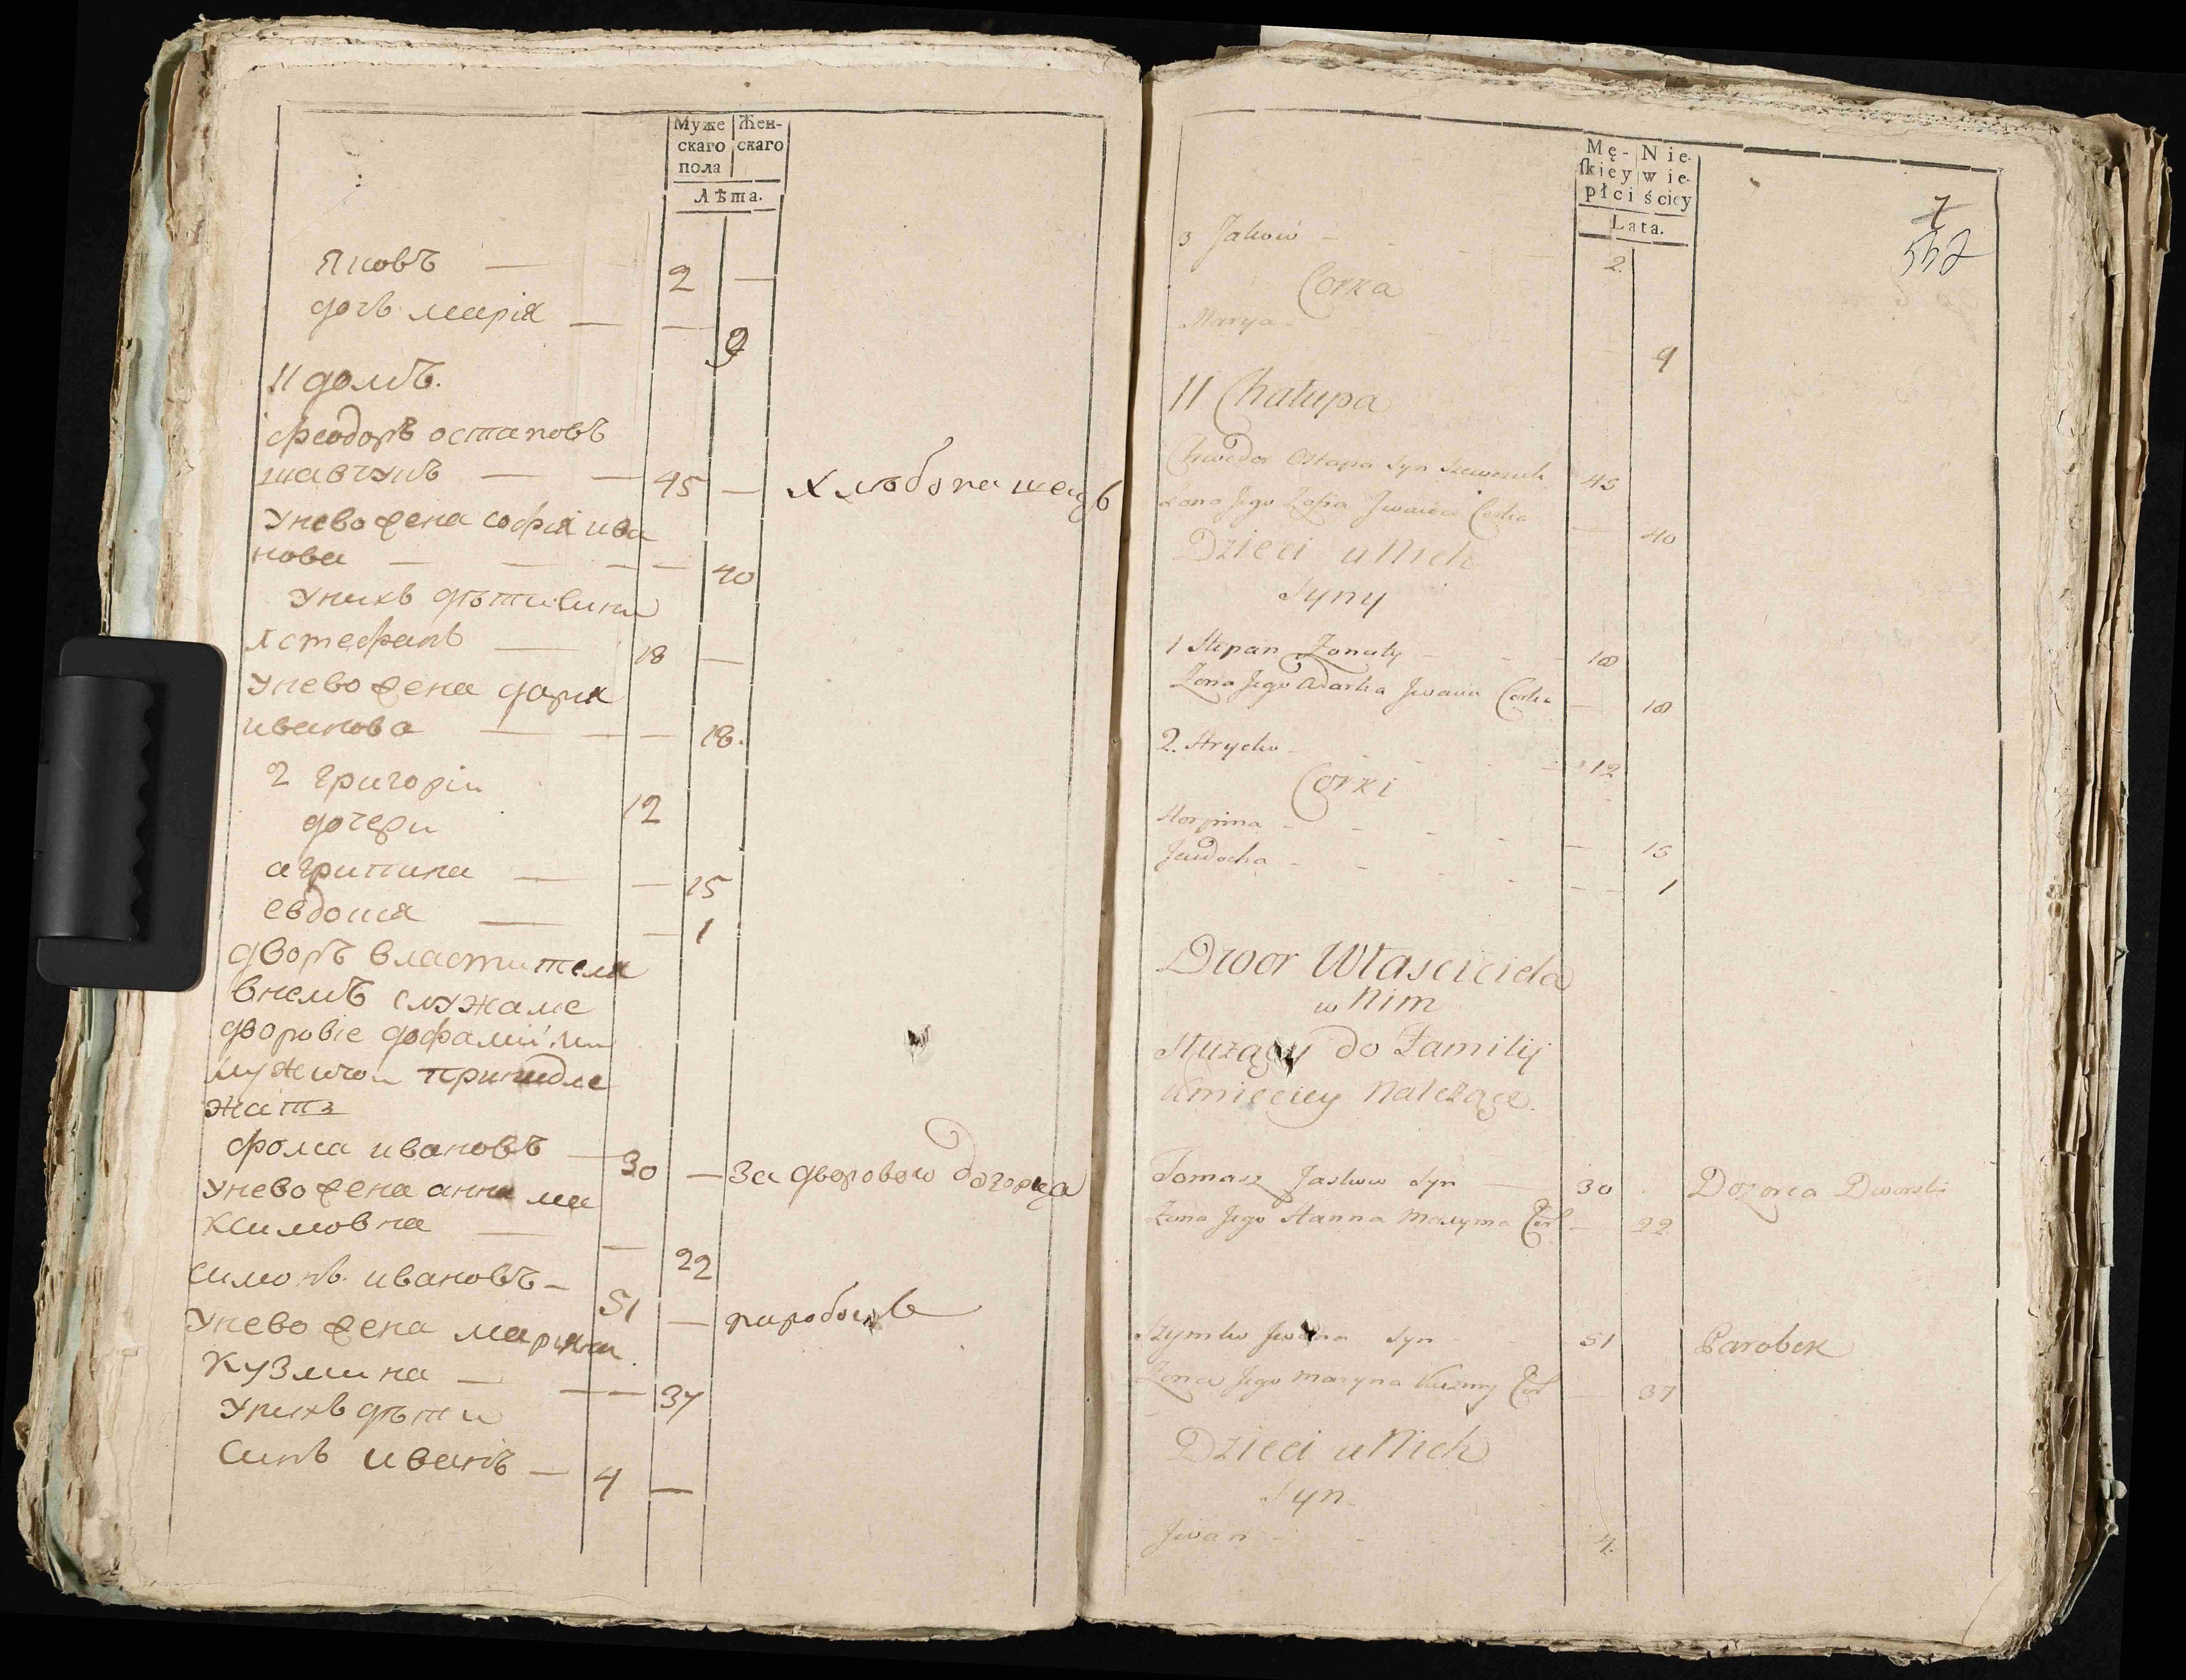 Муже Жен-
скаго скаго
пола
Лѣта.
Яковъ — 2 —
дочь марія — — 9
11 домъ.
феодоръ остаповъ
шавчукъ — — 45 — хлѣбопашецъ
унево жена софія ива
нова — — — — 40
унихъ дѣти сини
1 стефанъ — 18 —
унево жена дарія
иванова — — — 18.
2 григорій 12
дочери
агрипина — — 15
евдокия — — 1
дворъ властителя
внемъ служаие
дворовіе
принадле
жатъ
фома ивановъ — 30 — За дворового дозорца
унево жена анна ма
ксимовна — — 22
симонъ ивановъ — 51 — паробокъ
унево жена маряна
кузмина — — — 37
унихъ дѣти
Синъ иванъ — 4 —
Mę- Nie-
ſkiey wie-
płci ściey
Lata.
7
552
3 Jakow — 2.
Corka
Marya — 9
11 Chałupa
Chwedor Ostapa Syn Szewczuk 45
Zona Jego Zofia Jwana Corka — 40
Dzieci u Nich
Syny
1 Stepan Zonaty — 18
Zona Jego Adarka Jwana Corka — 18
2. Hrycko — 12
Corki
Horpina — 15
Jewdocha — 1
Dwor Własciciela
w Nim
Służący do Familij
Kmieciey Należące.
Tomasz Jaskow Syn — 30 Dozorca Dworski
Zona Jego Hanna Maxyma Cor. — 22
Szymko Jwana Syn 51 Parobek
Zona Jego Maryna Kuzmy Cor — 37
Dzieci u Nich
Syn.
Jwan — 4.